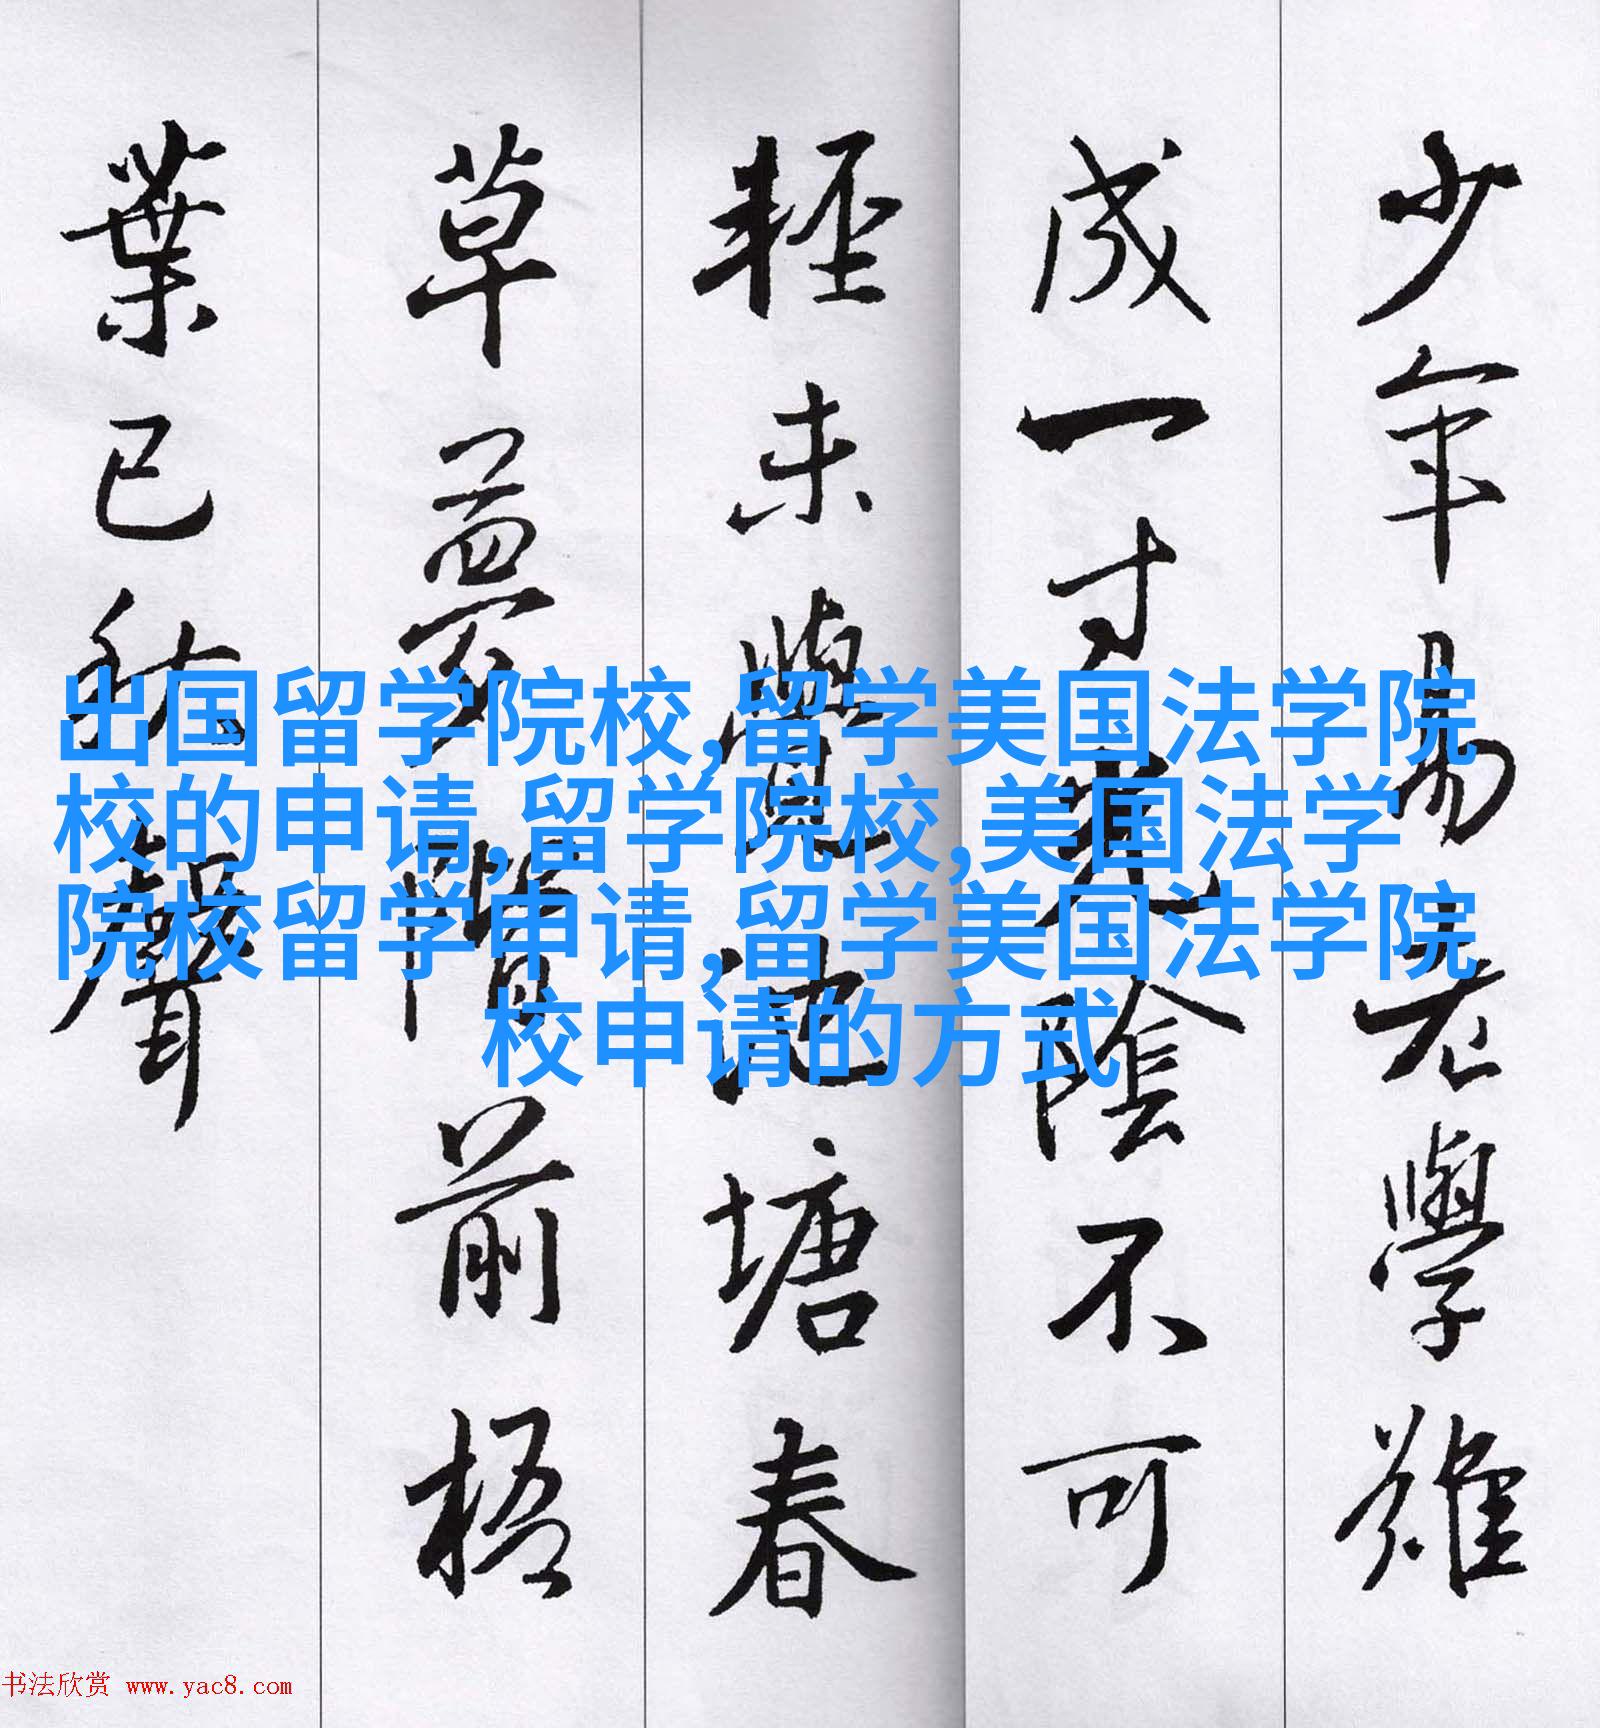 少年易老學難
成一寸光陰不可
輕未覺池塘春
草夢階前梧
葉已秋聲
出国留学院校,留学美国法学院
校的申请,留学院校,美国法学
院校留学申请,留学美国法学院
校申请的方式
书法欣赏 www.yac8.com